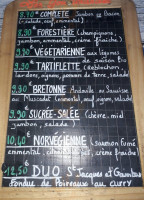 8,30€ COMPLETE Jambon de Bayonne
, salade, oeuf, emmental)
8,30€ FORESTIERE (champignons,
jambon, emmental, crème fraîche)
VEGETARIENNE aux légumes
de saison Bio
9,30€ TARTIFLETTE (Reblochon,
lardons, oignons, pomme de terre, salade
BRETONNE Andouille ou Saucisse
au Muscadet (emmental, oeuf, oignon, salade)
9,30 SUCRÉE-SALÉE (chèvre, miel
jambon, salade)
10,40€ NORVEGIENNE (saumon fumé
emmental, ciboulette, crème fraîche)
12,50 DUO St Jacques et Gambas
Fondue de Poireaux au curry